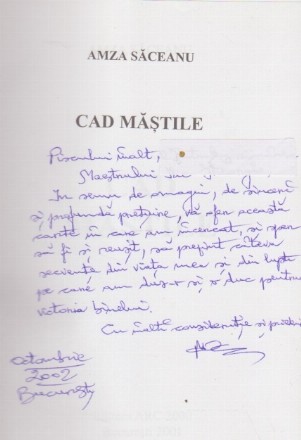 AMZA SĂCEANU
CAD MĂȘTILE
Piscului înalt,
Maestrului
În semn de omagiu, de sinceră
și profundă prețuire, vă ofer această
carte în care am încercat, și sper
să fi și reușit, să prefint câteva
secvențe din viața mea și din lupta
pe care am dus-o și o duc pentru
victoria binelui.
Cu înaltă considerație și
octombrie
2002
București